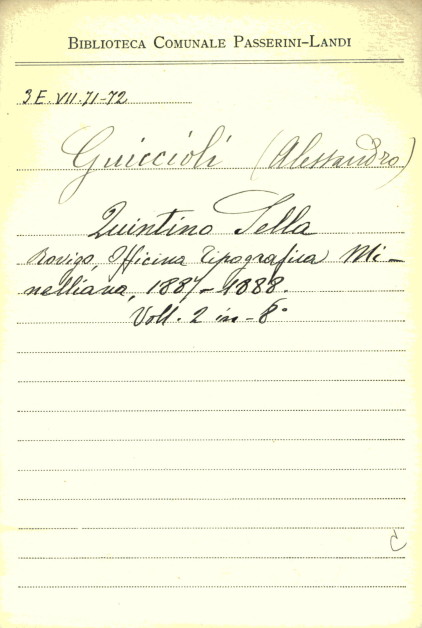 BIBLIOTECA COMUNALE PASSERINI-LANDI
3E.VII.71-72
Guiccioli (Alessandro)
Quintino Sella
Rovigo, Officina Tipografica Mi-
nelliana, 1887-1888.
Voll. 2 in-8°
C